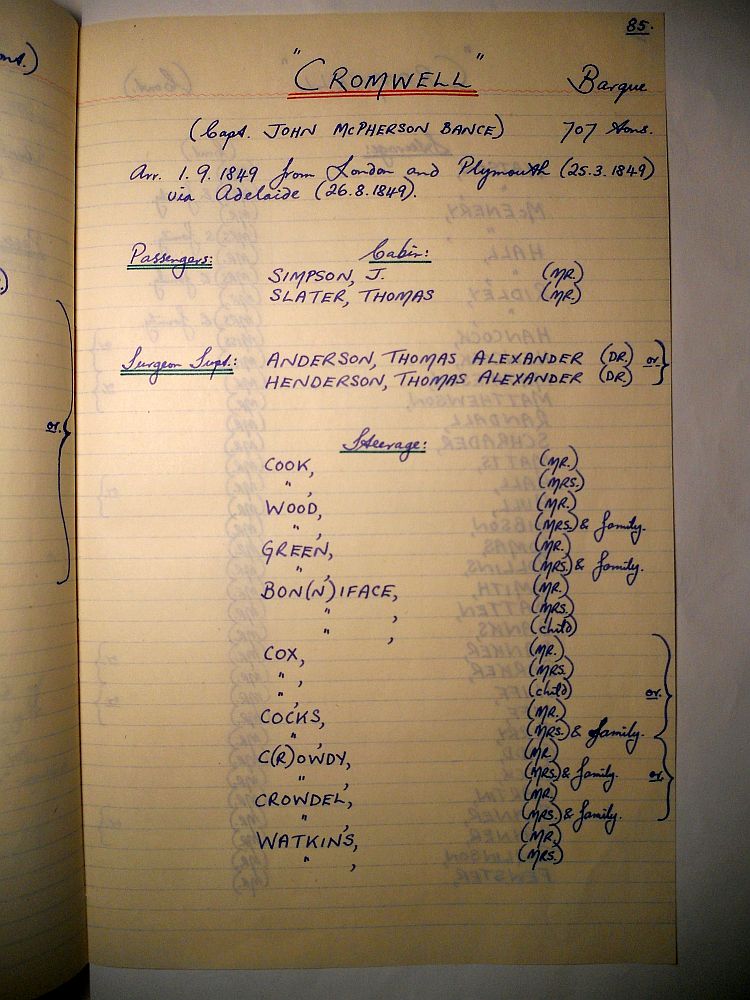 85.
"CROMWELL" Barque
(Capt. JOHN McPHERSON BANCE) 707 tons.
Arr. 1.9.1849 from London and Plymouth (25.3.1849)
via Adelaide (26.8.1849).
Passengers: Cabin:
SIMPSON, J. (MR.)
SLATER, THOMAS (MR.)
Surgeon Supt: ANDERSON, THOMAS ALEXANDER (DR.) or
HENDERSON, THOMAS ALEXANDER (DR.)
or.
Steerage:
COOK, (MR.)
", (MRS.)
WOOD, (MR.)
", (MRS.) & family.
GREEN, (MR.)
", (MRS.) & family.
BON(N)IFACE, (MR.)
", (MRS.)
", (child)
COX, (MR.)
", (MRS.)
", (child) or.
COCKS, (MR.)
", (MRS.) & family.
C(R)OWDY, (MR.)
", (MRS.) & family. or.
CROWDEL, (MR.)
", (MRS.) & family.
WATKINS, (MR.)
", (MRS.)